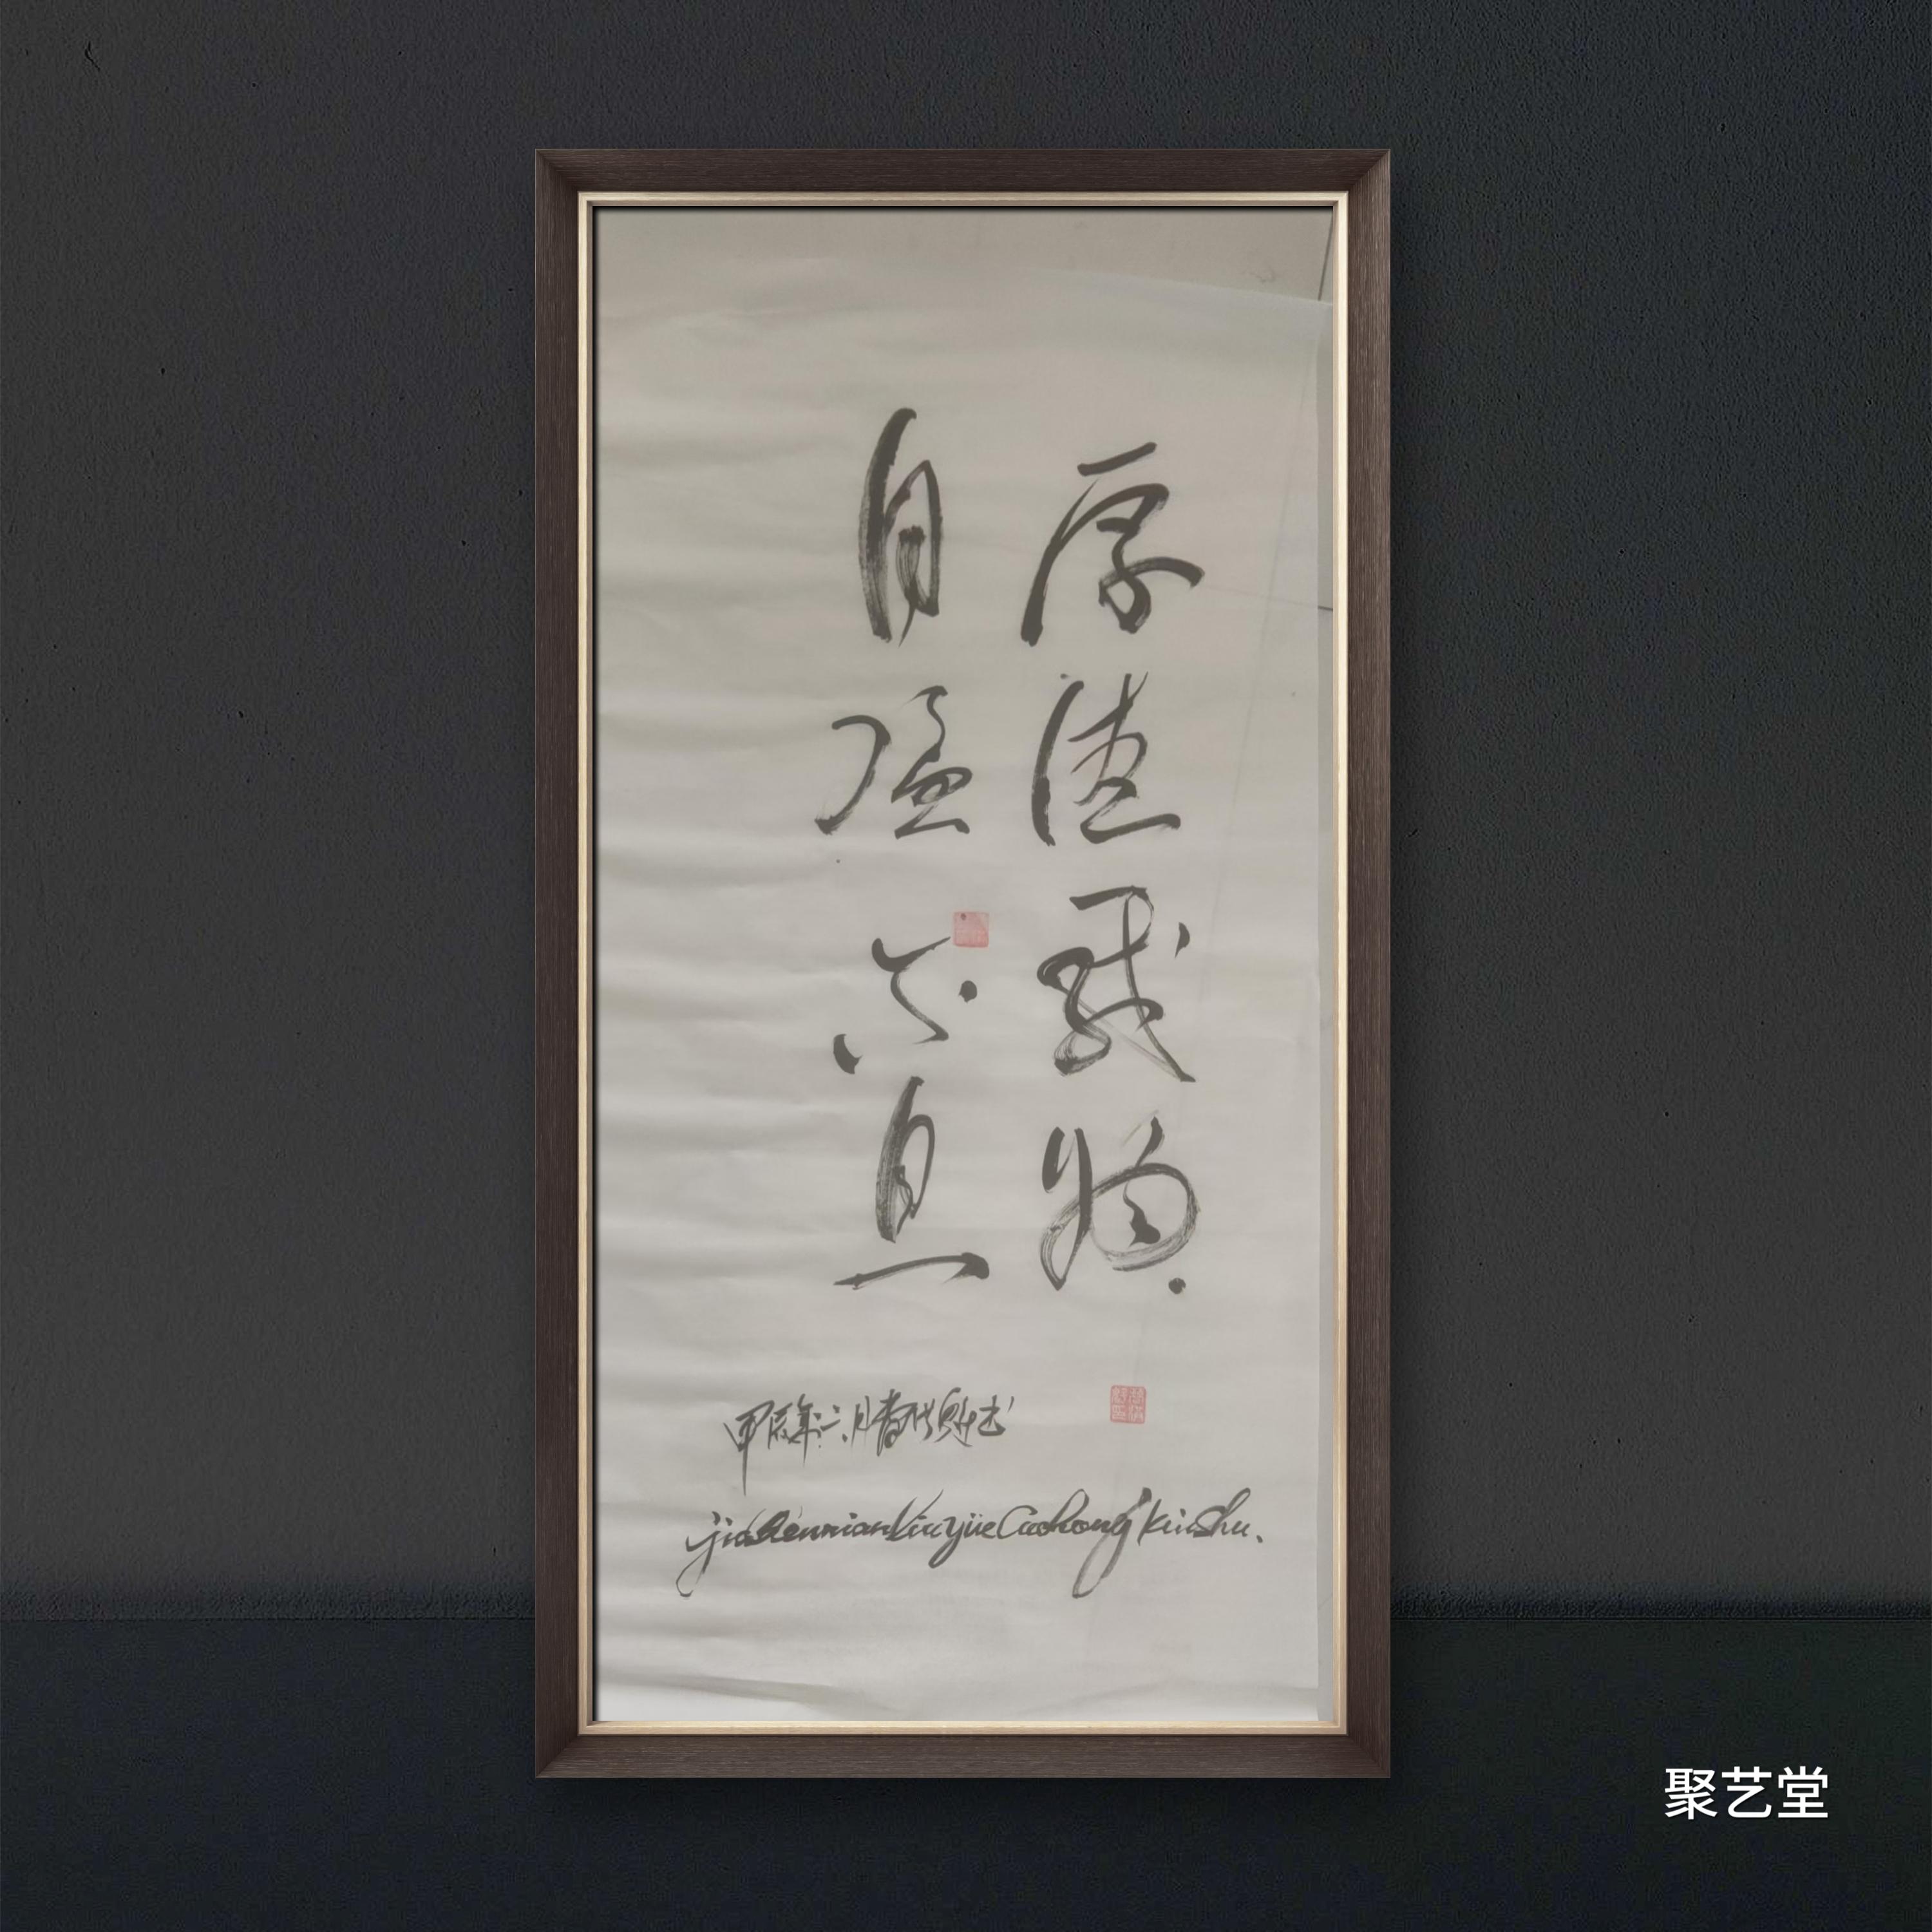 厚德载物
自强不息
甲辰年六月曹洪魁书
jiaChennianLiuyüeCaohongkuiShu.
聚艺堂